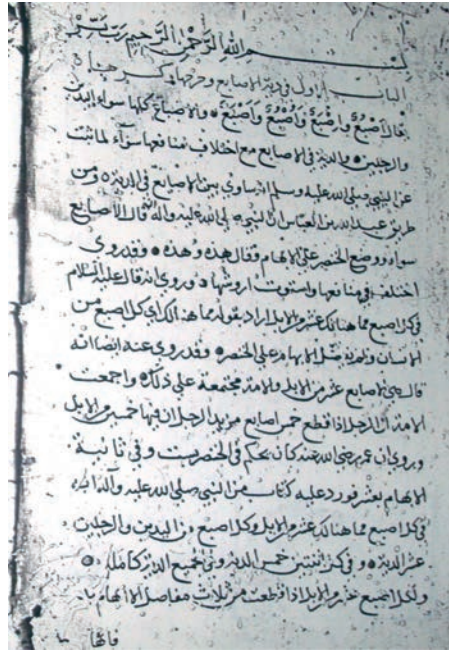 بسم الله الرحمن الرحيم رب يسر
الباب الاول في دية الاصابع وجراحها
قال اصبع واصبع واصبع واصبع والاصابع كلها سواء اليدين
والرجلين والدية في الاصابع مع اختلاف منافعها سواء لما ثبت
عن النبي صلى الله عليه وسلم انه ساوى بين الاصابع في الدية ومن
طريق عبد الله بن العباس ان النبي صلى الله عليه واله قال الاصابع
سواء ووضع الخنصر على الابهام فقال هذه وهذه وقد روي
اختلف في منافعها واستوت اروشها وروي انه قال عليه السلام
في كل اصبع مما هنالك عشر من الابل اراد بقوله مما هنالك اي كل اصبع من
الانسان الابهام على الخنصر وقد روي عنه ايضا انه
قال في الاصابع عشر من الابل والامة مجتمعة على ذلك واجمعت
الامة ان الرجل اذا قطع خمس اصابع من يد الرجل ان فيها خمسين من الابل
وروي ان عمر رضي الله عنه كان يحكم في الخنصر بست وفي
الابهام بعشر فورد عليه كتاب من النبي صلى الله عليه واله
في كل اصبع مما هنالك عشر من الابل وكل اصبع من اليدين والرجلين
عشر الدية وفي كل اثنتين خمس الدية وفي الجميع الدية كاملة
ولكل اصبع عشر من الابل اذا قطعت من ثلاث مفاصل الا الابهام
فانها